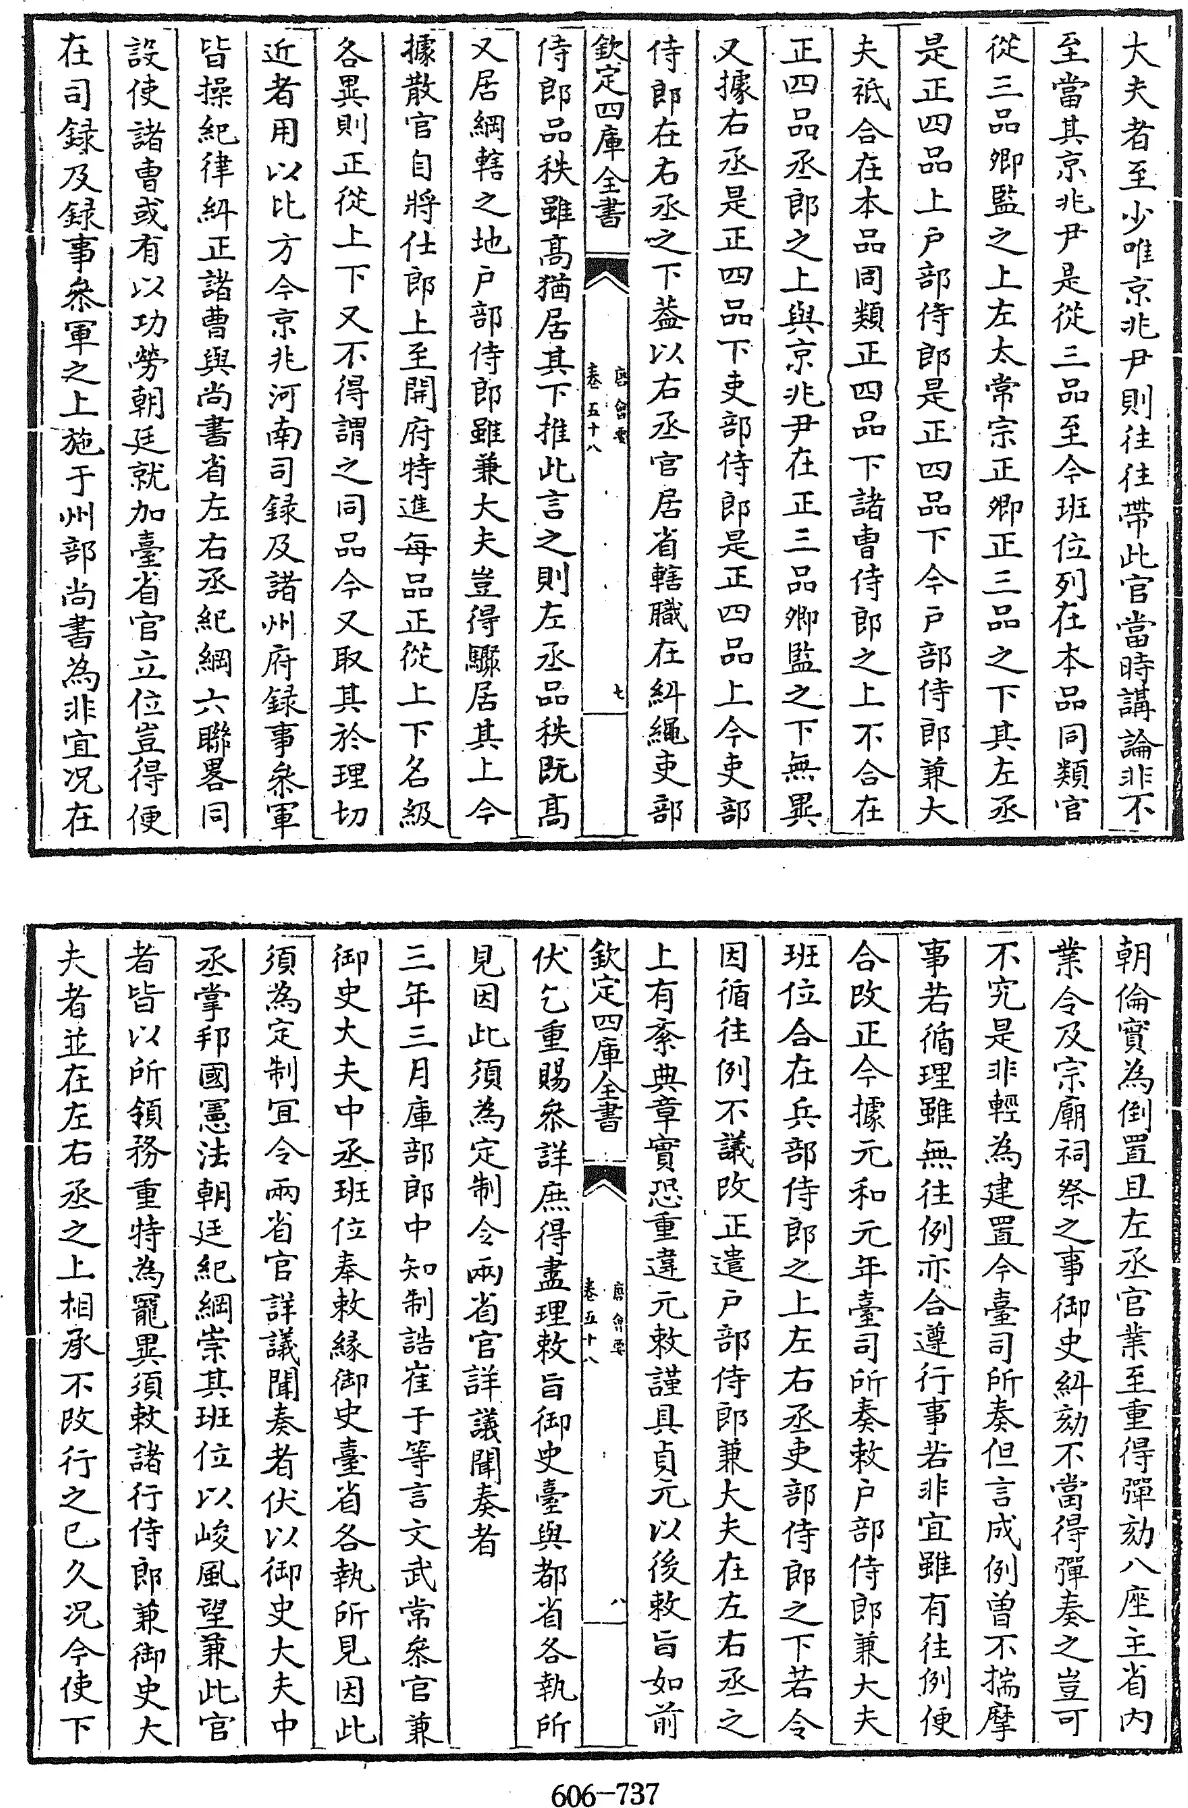 大夫者至少唯京兆尹則往往帶此官當時講論非不
至當其京兆尹是從三品至今班位列在本品同類官
從三品卿監之上左太常宗正卿正三品之下其左丞
是正四品上户部侍郎是正四品下今户部侍郎兼大
夫祇合在本品同類正四品下諸曹侍郎之上不合在
正四品丞郎之上與京兆尹在正三品卿監之下無異
又據右丞是正四品下吏部侍郎是正四品上今吏部
侍郎在右丞之下葢以右丞官居省轄職在糾繩吏部
欽定四庫全書
唐會要
卷五十八
七
侍郎品秩雖髙猶居其下推此言之則左丞品秩既髙
又居綱轄之地户部侍郎雖兼大夫豈得驟居其上今
據散官自將仕郎上至開府特進每品正從上下名級
各異則正從上下又不得謂之同品今又取其於理切
近者用以比方今京兆河南司録及諸州府録事叅軍
皆操紀律糾正諸曹與尚書省左右丞紀綱六聯畧同
設使諸曹或有以功勞朝廷就加臺省官立位豈得便
在司録及録事叅軍之上施于州部尚書為非宜况在
朝倫實為倒置且左丞官業至重得彈劾八座主省内
業令及宗廟祠祭之事御史糾劾不當得彈奏之豈可
不究是非輕為建置今臺司所奏但言成例曾不揣摩
事若循理雖無往例亦合遵行事若非宜雖有往例便
合改正今據元和元年臺司所奏敕户部侍郎兼大夫
班位合在兵部侍郎之上左右丞吏部侍郎之下若令
因循往例不議改正遣户部侍郎兼大夫在左右丞之
上有紊典章實恐重違元敕謹具貞元以後敕旨如前
欽定四庫全書
唐會要
卷五十八
八
伏乞重賜叅詳庶得盡理敕旨御史臺與都省各執所
見因此須為定制令兩省官詳議聞奏者
三年三月庫部郎中知制誥崔于等言文武常叅官兼
御史大夫中丞班位奉敕縁御史臺省各執所見因此
須為定制宜令兩省官詳議聞奏者伏以御史大夫中
丞掌邦國憲法朝廷紀綱崇其班位以峻風望兼此官
者皆以所領務重特為寵異須敕諸行侍郎兼御史大
夫者並在左右丞之上相承不改行之已久况今使下
606-737